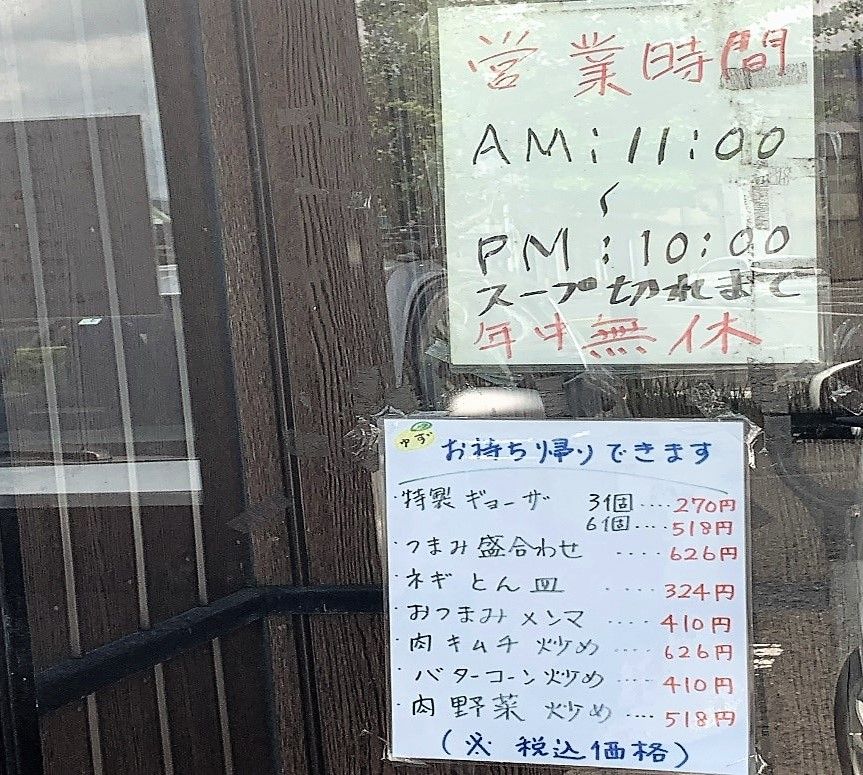 営業時間
AM:11:00
〜
PM:10:00
スープ切れまで
年中無休
ゆず お持ち帰りできます
・特製ギョーザ 3個‥‥270円
6個‥‥518円
・つまみ盛合わせ ‥‥626円
・ネギとん皿 ‥‥324円
・おつまみメンマ ‥‥410円
・肉キムチ炒め ‥‥626円
・バターコーン炒め ‥‥410円
・肉野菜炒め ‥‥518円
(※ 税込価格)